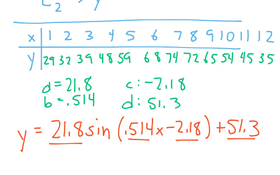 x 1 2 3 4 5 6 7 8 9 10 11 12
y 29 32 39 48 59 68 74 72 65 54 45 35
a = 21.8 c: -2.18
b = .514 d: 51.3
y = 21.8 sin (.514x - 2.18) + 51.3